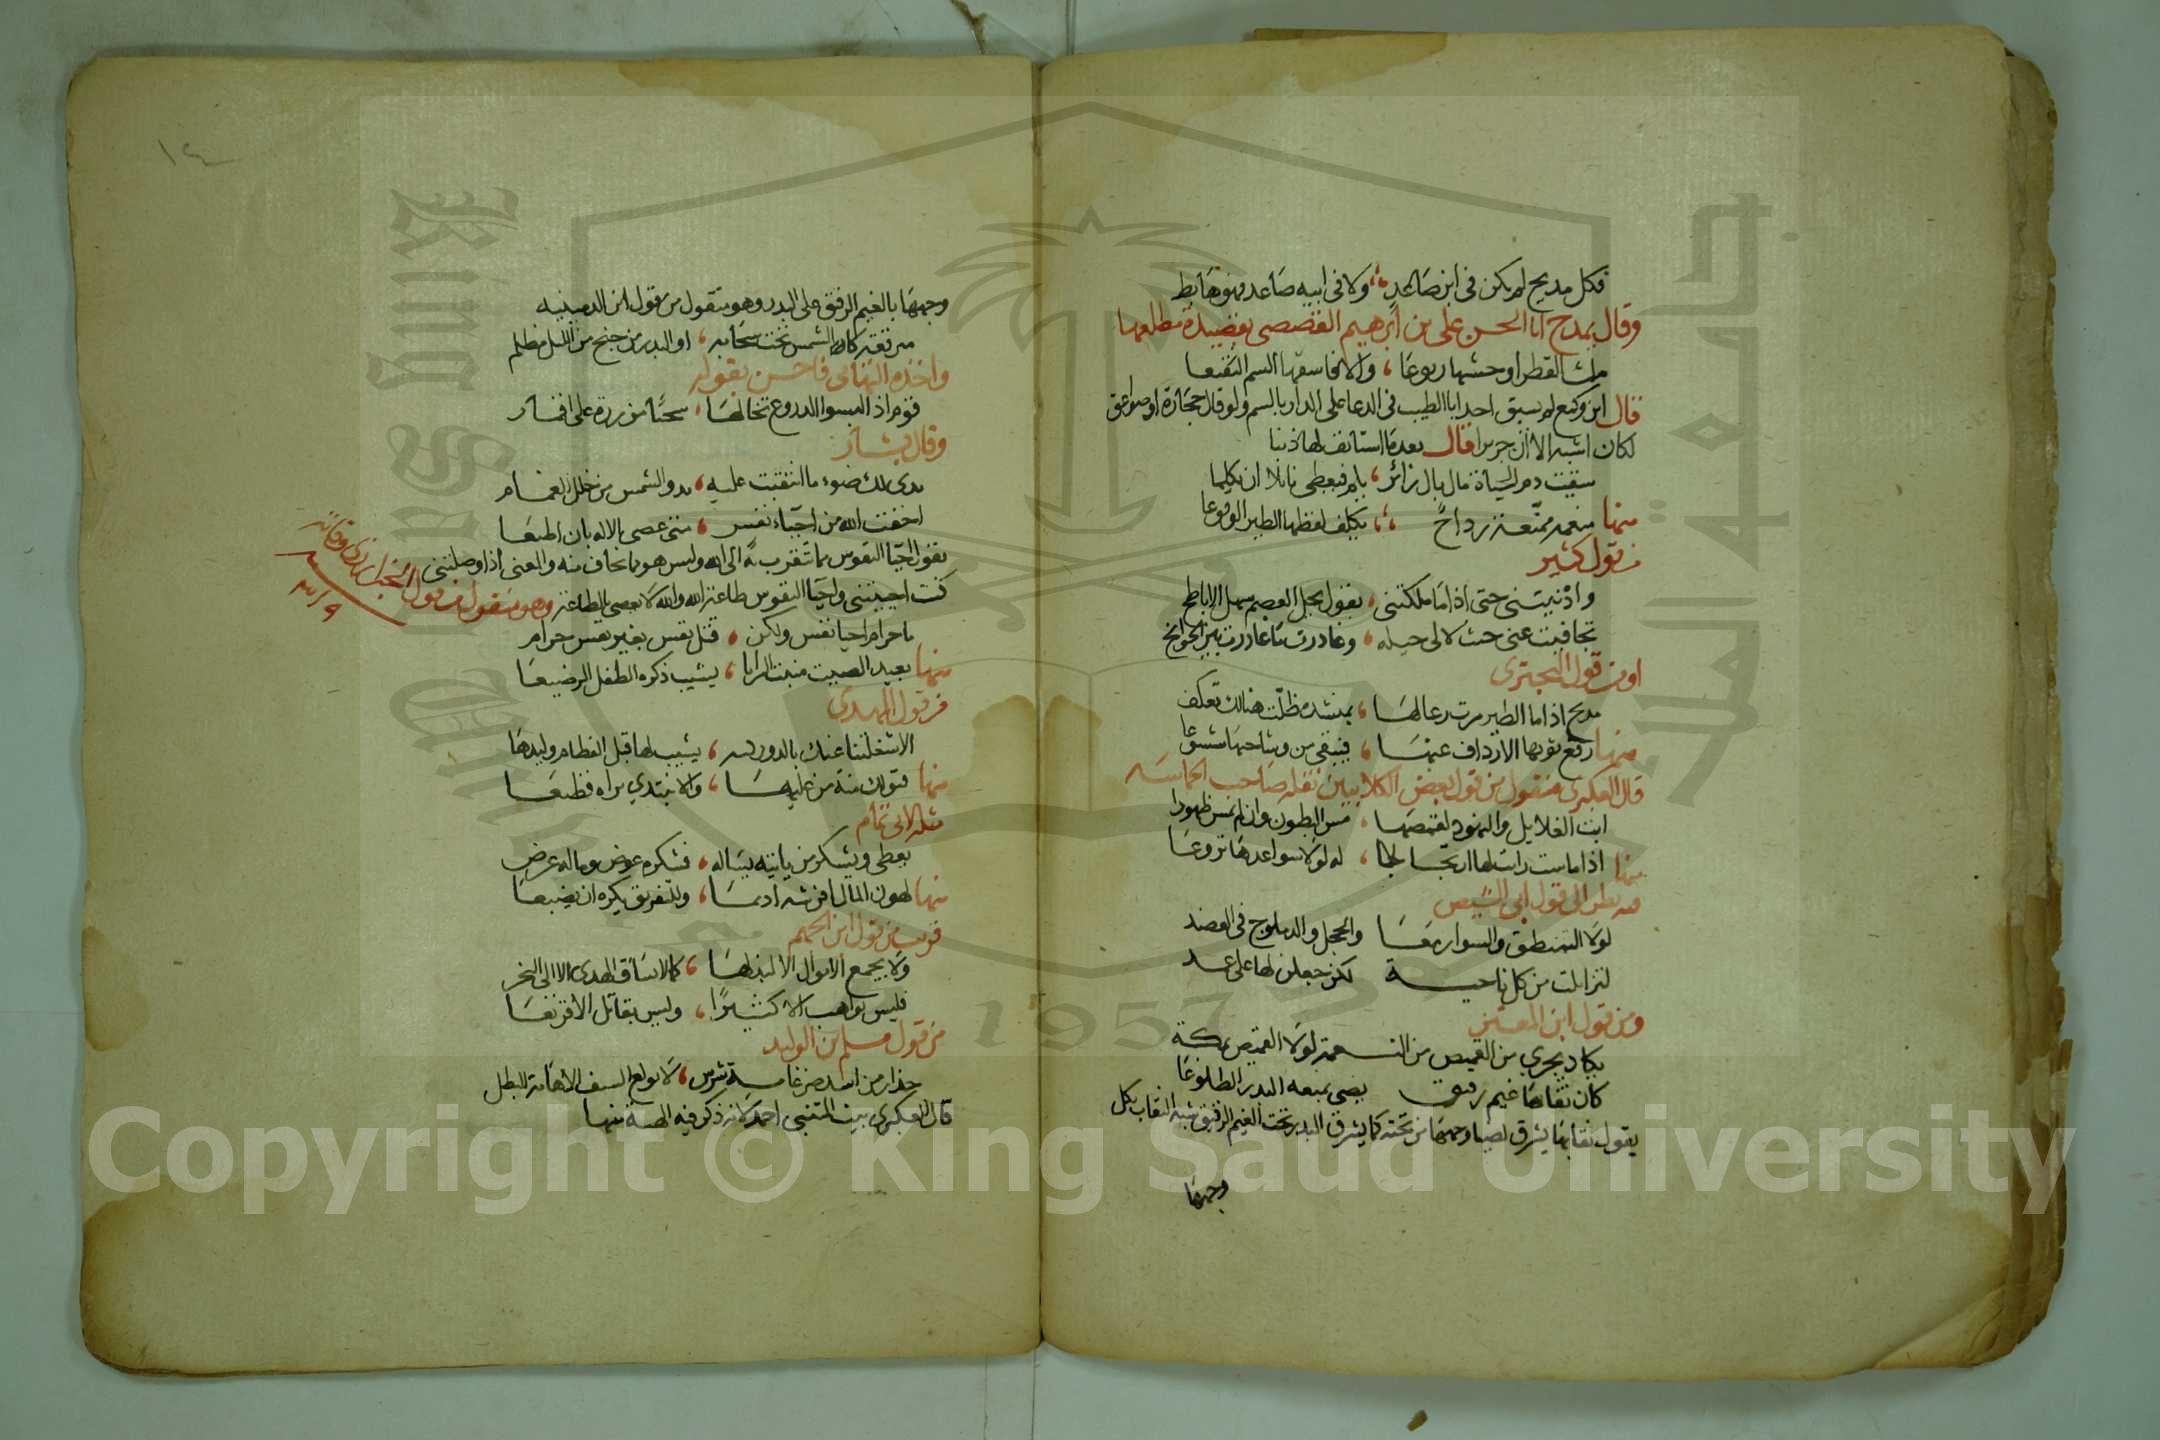 فكل مديح لم يكن في ابن صاعد ولا في ابيه صاعد فهو هابط
وقال يمدح ابا الحسن علي بن ابرهيم القصصي بقصيدة مطلعها
ملث القطر اوحشها ربوعا والا فاسقها السم النقيعا
قال ابن وكيع لم يسبق احد ابا الطيب في الدعا على الدار بالسم ولو قال حجارة او صواعق
لكان اشبه الا ان جريرا قال بعد ما استانف لها ذنبا
سقيت دم الحياة ما بال زائر يلم فيعطى نائلا ان يكلما
منها منعمة ممنعة رداح يكلف لفظها الطير الوقوعا
من قول كثير
وادنيتني حتى اذا ما ملكتني بقول يحل العصم سهل الاباطح
تجافيت عني حيث لا لي حيلة وغادرت ما غادرت بين الجوانح
او من قول البحتري
مديح اذا ما الطير مرت رعالها بمنشده ظلت هنالك تعكف
منها ترفع ثوبها الارداف عنها فيبقى من وشاحيها شسوعا
قال العكبري منقول من قول بعض الكلابيين نقله صاحب الحماسه
ابت الغلايل والنهود لقمصها مس البطون وان تمس ظهورا
منها اذا ماست رايت لها ارتجاجا له لولا سواعدها نزوعا
فيه نظر الى قول ابي الشيص
لولا التمنطق والسوار معا والحجل والدملوج في العضد
لتزايلت من كل ناحية لكن جعلن لها على عمد
ومن قول ابن المعتز
يكاد يجري من القميص من النعمة لولا القميص يمسكه
كان نقابها غيم رقيق يضي بمنعه البدر الطلوعا
يقول نقابها يشرق بضيا وجهها من تحته كما يشرق البدر تحت الغيم الرقيق شبه النقاب بكل
وجهها
١٤
وجهها بالغيم الرقيق على البدر وهو منقول من قول ابن الدمينيه
متنقبة كالشمس تحت سحابة او البدر من جنح من الليل مظلم
واخذه التهامي فاحسن بقوله
قوم اذا لبسوا الدروع تخالها سحبا مزررة على اقمار
وقال بشار
بدى لك ضوء ما انتقبت عليه بدو الشمس من خلل الغمام
اخفت الله من احيآء نفس متى عصي الاله بان اطيعا
يقول احيا النفوس مما تقرب به الى الله وليس هو مما يخاف منه والمعنى اذا وصلتني
كنت احييتني واحيا النفوس طاعة الله والله لا يعصى بالطاعة وهو منقول من قول
ما حرام احيا نفس ولكن قتل نفس بغير نفس حرام
منها بعيد الصيت منبث السرايا يشيب ذكره الطفل الرضيعا
من قول المهدي
منها قبولك منه من عليها والا يبتدي يراه فظيعا
مثله لابي تمام
يعطي ويشكر من ياتيه يساله فشكره عوض وماله عرض
منها لهون المال افرشه اديما وللتفريق يكره ان يضيعا
قريب من قول ابن الجهم
ولا يجمع الاموال الا لبذلها كما لا يساق الهدي الا الى النحر
فليس بواهب الا كثيرا وليس بقاتل الا قريعا
من قول مسلم بن الوليد
حذار من اسد ضرغامة شرس لا يولغ السيف الا هامة البطل
قال العكبري بيت المتنبي احمد لانه ذكر فيه الهبة منها